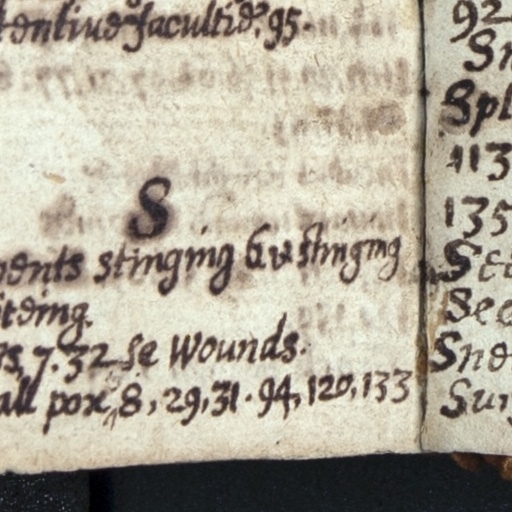 tentiue facultie. 95.
S
pents stinging 6. v stinging
iteing.
rs, 7. 32 se wounds.
all pox, 8, 29, 31. 94, 120, 133
92
Sn
Spl
113
135
See
Sne